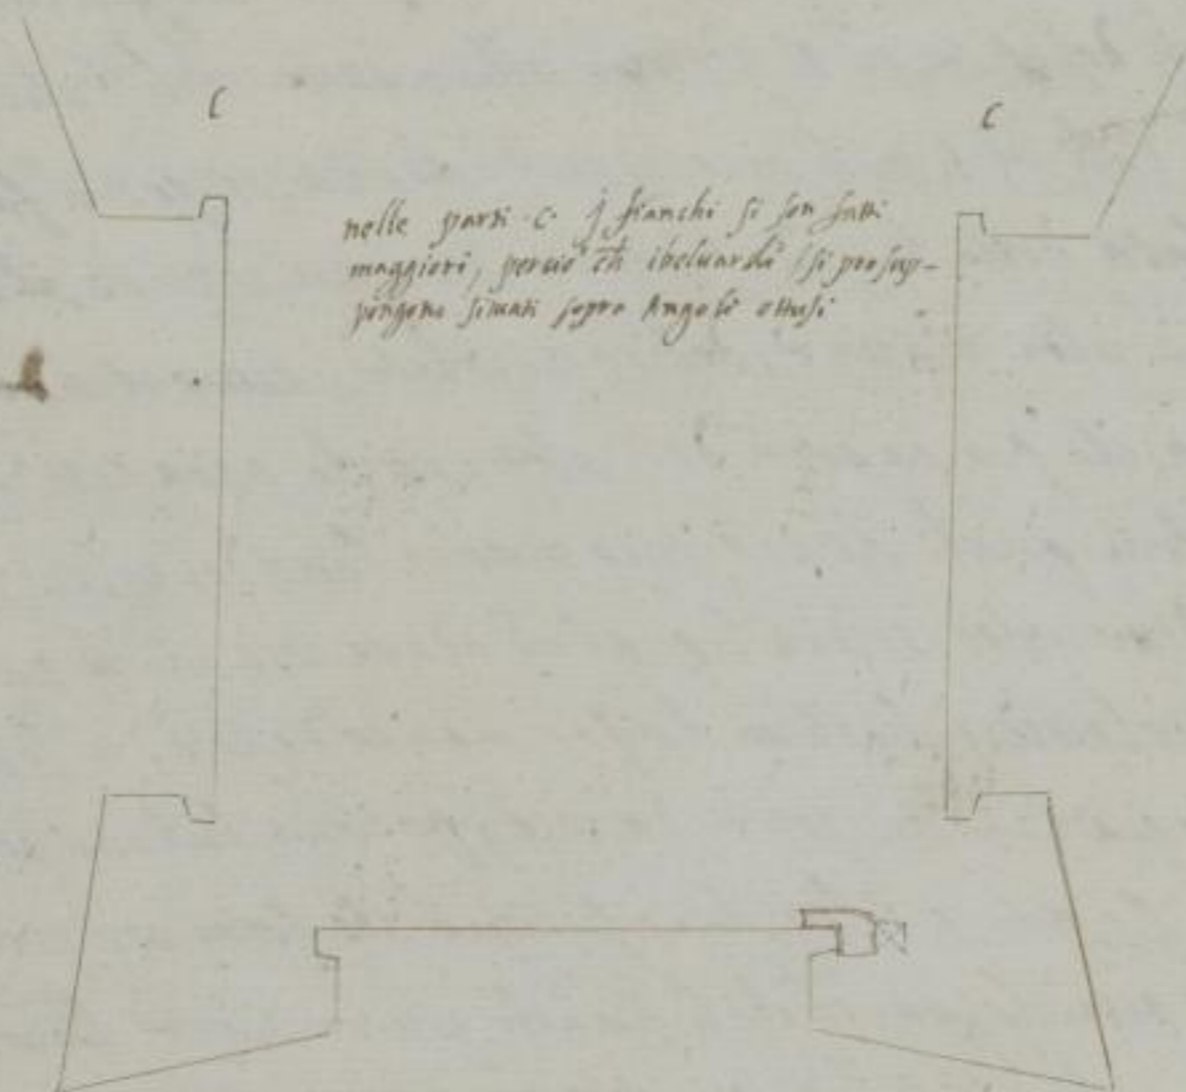 C
C
nelle parti ·C· j fianchi si son fatti
maggiori, perciò ch̄ i beluardi si presup-
pongono situati sopra Angoli ottusi